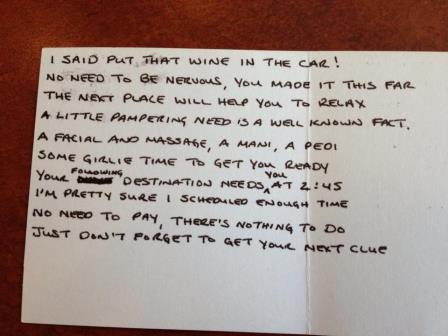 I SAID PUT THAT WINE IN THE CAR!
NO NEED TO BE NERVOUS, YOU MADE IT THIS FAR
THE NEXT PLACE WILL HELP YOU TO RELAX
A LITTLE PAMPERING NEED IS A WELL KNOWN FACT.
A FACIAL AND MASSAGE, A MANI, A PEDI
SOME GIRLIE TIME TO GET YOU READY
YOUR FOLLOWING DESTINATION NEEDS YOU AT 2:45
I'M PRETTY SURE I SCHEDULED ENOUGH TIME
NO NEED TO PAY, THERE'S NOTHING TO DO
JUST DON'T FORGET TO GET YOUR NEXT CLUE